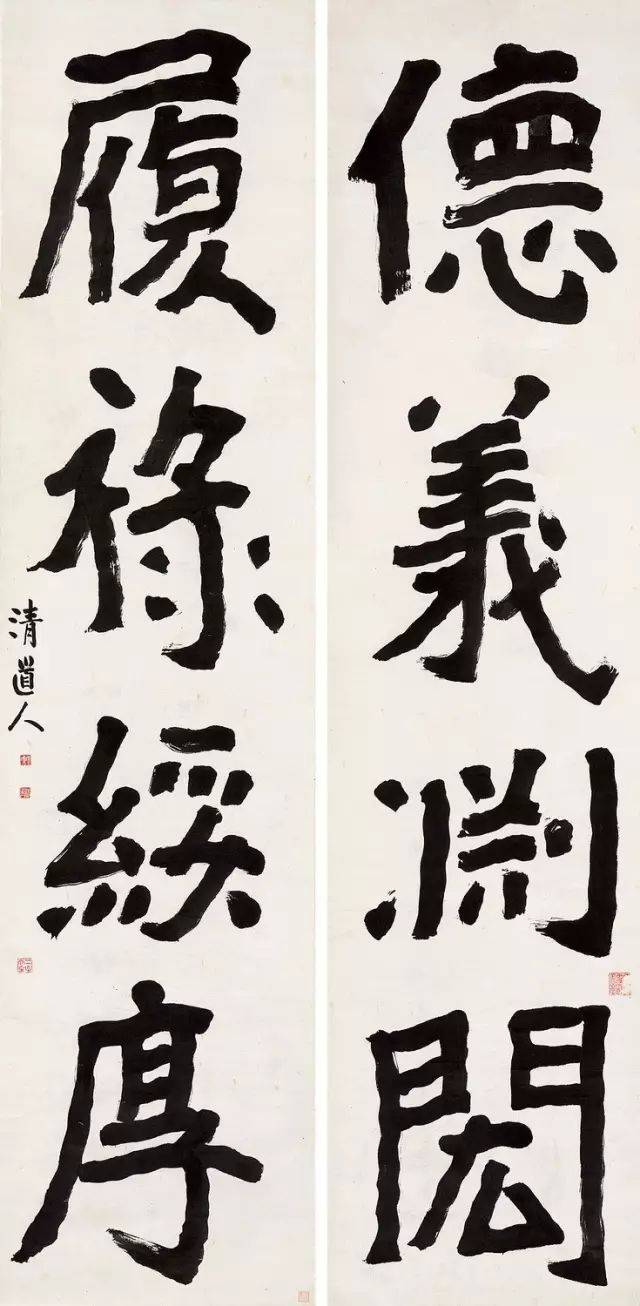 德義淵閎
履祿綏厚
清道人